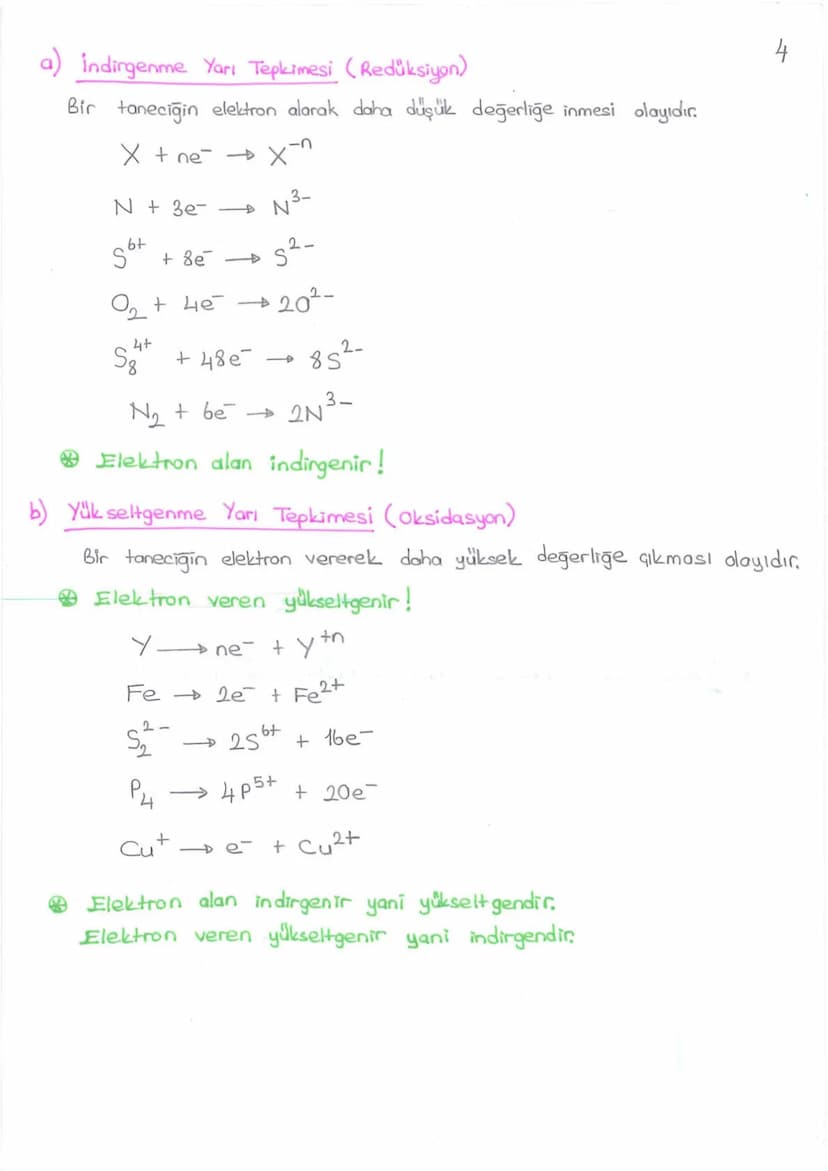 4
a) İndirgenme Yarı Tepkimesi (Redüksiyon)
Bir taneciğin elektron alarak daha düşük değerliğe inmesi olayıdır.
X + ne⁻ → X⁻ⁿ
N + 3e⁻ → N³⁻
S⁶⁺ + 8e⁻ → S²⁻
O₂ + 4e⁻ → 2O²⁻
S₈⁴⁺ + 48e⁻ → 8S²⁻
N₂ + 6e⁻ → 2N³⁻
⊛ Elektron alan indirgenir!
b) Yükseltgenme Yarı Tepkimesi (Oksidasyon)
Bir taneciğin elektron vererek daha yüksek değerliğe çıkması olayıdır.
⊛ Elektron veren yükseltgenir!
Y → ne⁻ + Y⁺ⁿ
Fe → 2e⁻ + Fe²⁺
S₂²⁻ → 2S⁶⁺ + 16e⁻
P₄ → 4P⁵⁺ + 20e⁻
Cu⁺ → e⁻ + Cu²⁺
⊛ Elektron alan indirgenir yani yükseltgendir.
Elektron veren yükseltgenir yani indirgendir.